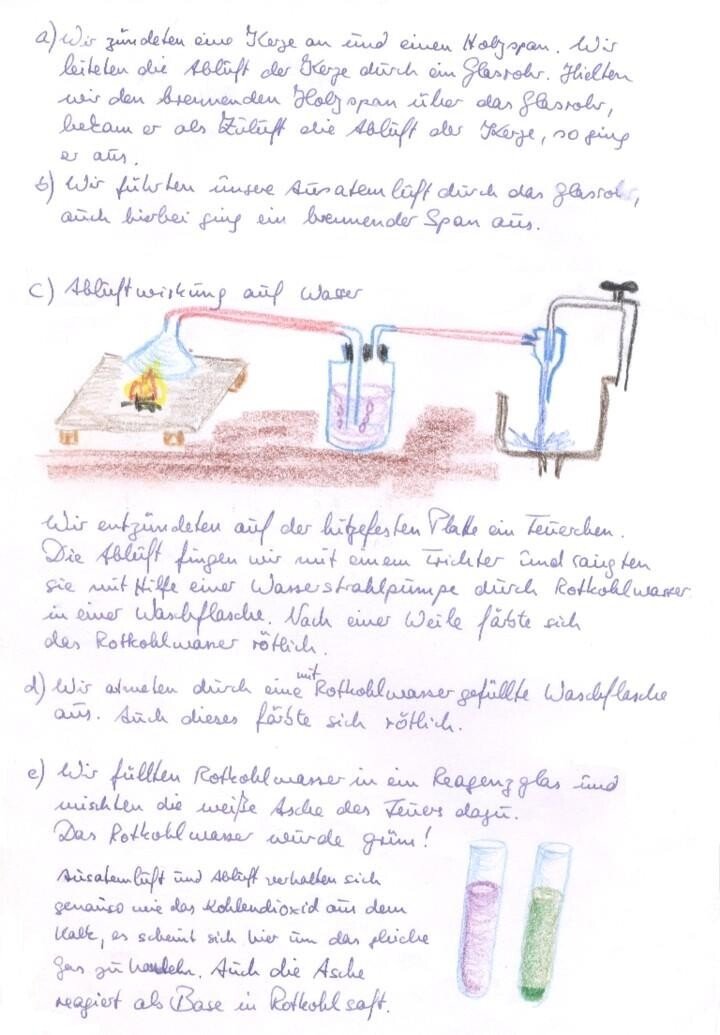 a) Wir zündeten eine Kerze an und einen Holzspan. Wir
leiteten die Abluft der Kerze durch ein Glasrohr. Hielten
wir den brennenden Holzspan über das Glasrohr,
bekam er als Zuluft die Abluft der Kerze, so ging
er aus.
b) Wir führten unsere Ausatemluft durch das Glasrohr,
auch hierbei ging ein brennender Span aus.
c) Abluftwirkung auf Wasser
Wir entzündeten auf der hitzefesten Platte ein Feuerchen.
Die Abluft fingen wir mit einem Trichter und saugten
sie mit Hilfe einer Wasserstrahlpumpe durch Rotkohlwasser
in einer Waschflasche. Nach einer Weile färbte sich
das Rotkohlwasser rötlich.
d) Wir atmeten durch eine mit Rotkohlwasser gefüllte Waschflasche
aus. Auch dieses färbte sich rötlich.
e) Wir füllten Rotkohlwasser in ein Reagenzglas und
mischten die weiße Asche des Feuers dazu.
Das Rotkohlwasser wurde grün!
Ausatemluft und Abluft verhalten sich
genauso wie das Kohlendioxid aus dem
Kalk, es scheint sich hier um das gleiche
Gas zu handeln. Auch die Asche
reagiert als Base in Rotkohlsaft.